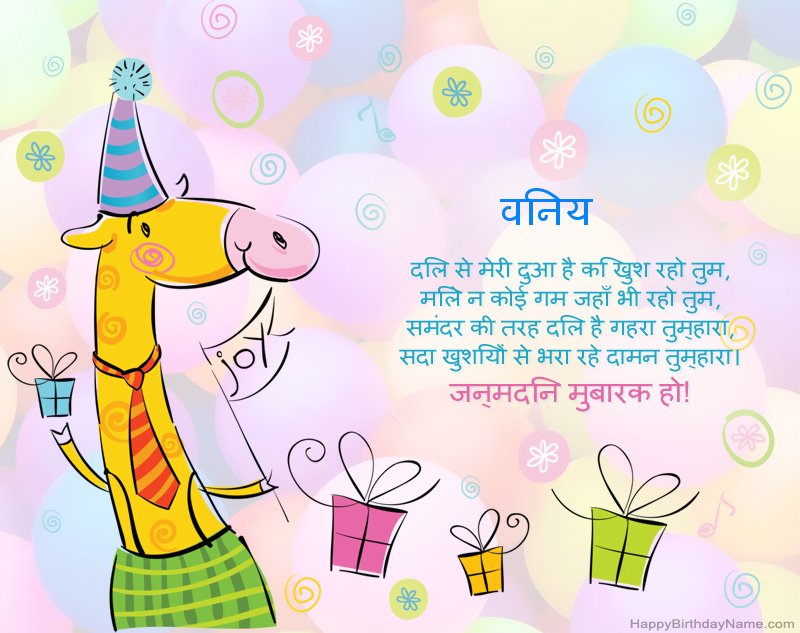 joy
वनिय
दलि से मेरी दुआ है कि खुश रहो तुम,
मलिे न कोई गम जहाँ भी रहो तुम,
समंदर की तरह दलि है गहरा तुम्हारा,
सदा खुशयिों से भरा रहे दामन तुम्हारा।
जन्मदनि मुबारक हो!
HappyBirthdayName.com